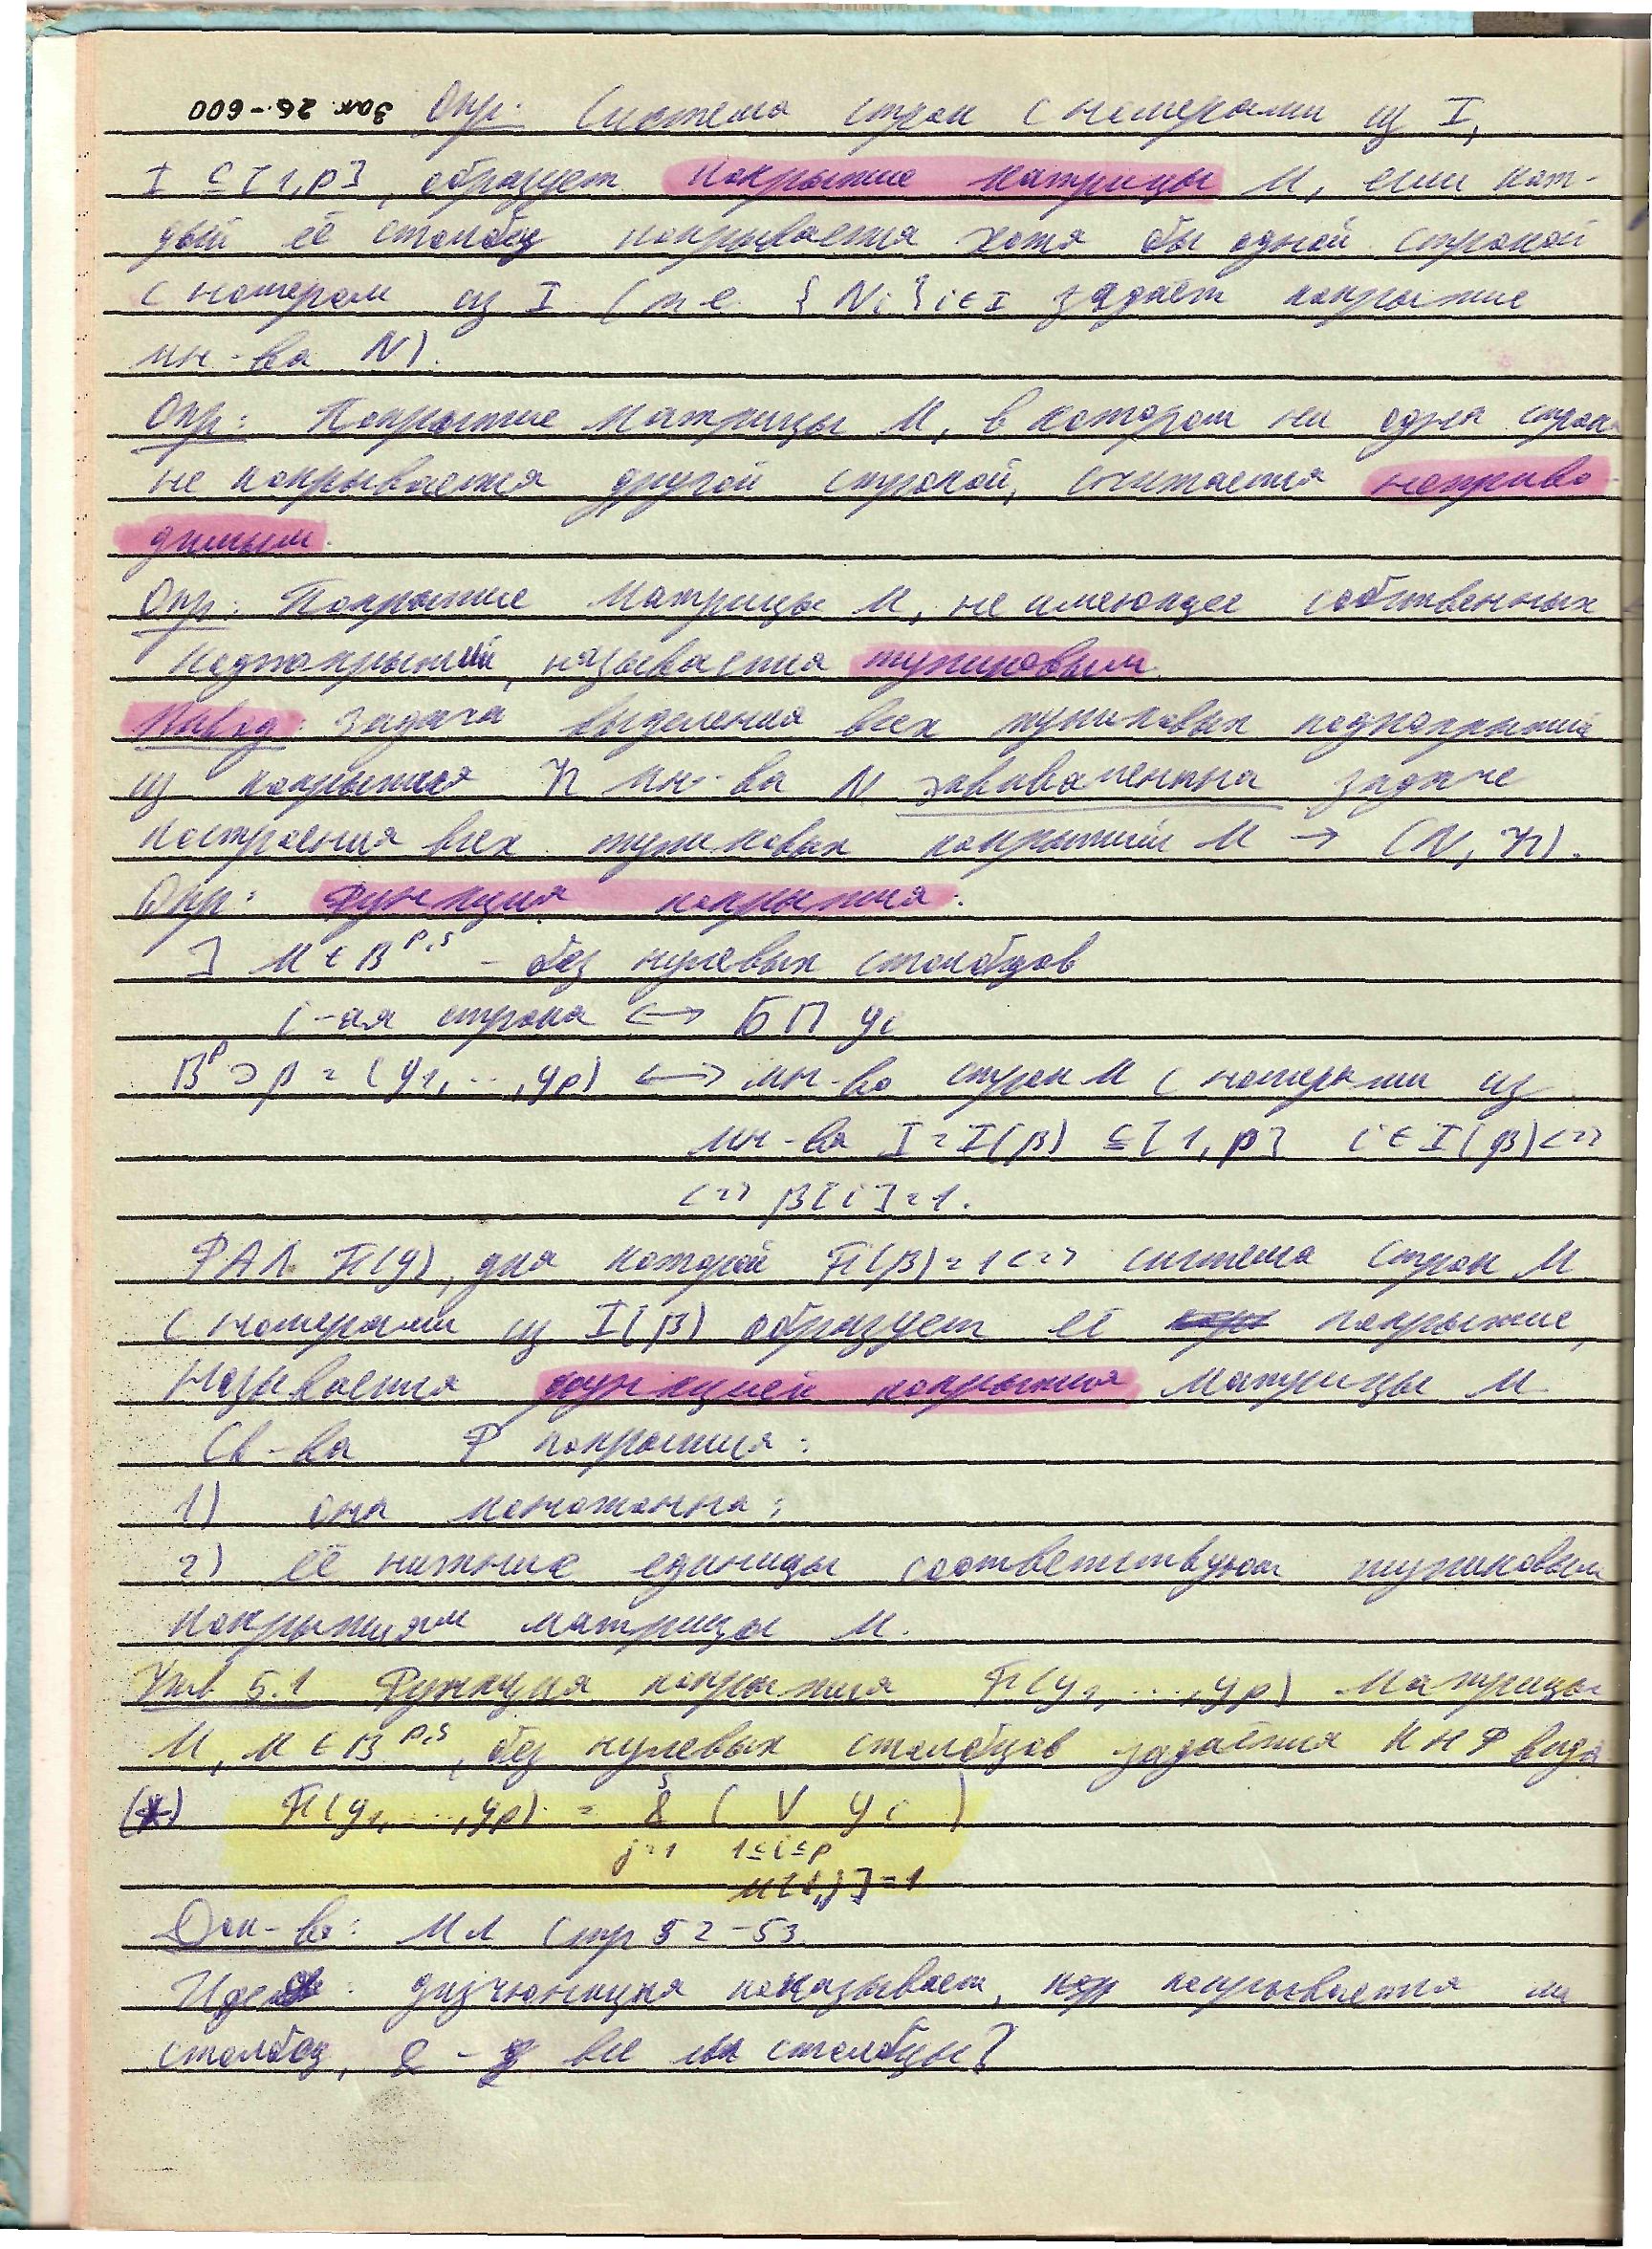 Зак 26-600 Опр: Система строк с номерами из I,
I ⊆ [1,p], образует покрытие матрицы M, если каж-
дый её столбец покрывается хотя бы одной строкой
с номером из I (т.е. {Ni}i∈I задаёт покрытие
мн-ва N).
Опр: Покрытие матрицы M, в котором ни одна строка
не покрывается другой строкой, считается неприво-
димым.
Опр: Покрытие матрицы M, не имеющее собственных
подпокрытий, называется тупиковым.
задача выделения всех тупиковых подпокрытий
из покрытия 𝒩 мн-ва N эквивалентна задаче
построения всех тупиковых покрытий M → (N, 𝒩).
Опр: Функция покрытия:
] M ∈ B^{p,s} - без нулевых столбцов
i-ая строка ↔ БП yi
B^p ∋ β = (y1,...,yp) ↔ мн-во строк M с номерами из
мн-ва I = I(β) ⊆ [1,p] i ∈ I(β) <=>
<=> β[i] = 1.
ФАЛ F(y), для которой F(β) = 1 <=> система строк M
с номерами из I(β) образует её покрытие,
называется функцией покрытия матрицы M
Св-ва Ф покрытия:
1) она монотонна;
2) её нижние единицы соответствуют тупиковым
покрытиям матрицы M.
Утв 5.1 Функция покрытия F(y1,...,yp) матрицы
M, M ∈ B^{p,s}, без нулевых столбцов задаётся КНФ вида
(*) F(y1,...,yp) = & ( V yi )
s
j=1 1≤i≤p
M[i,j]=1
Док-во: МЛ стр 52-53.
Идея: дизъюнкция показывает, покрывается ли
столбец, & - все ли столбцы?